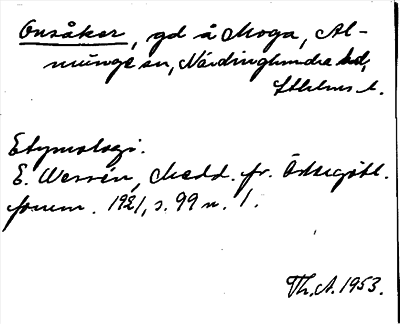 Onsåker, gd å Moga, Al-
munge sn, Närdinghundra hd,
Sthlms l.
Etymologi.
E. Wessén, Medd. fr. Östergötl.
fornm. 1921, s. 99 n. 1.
Th. A. 1953.